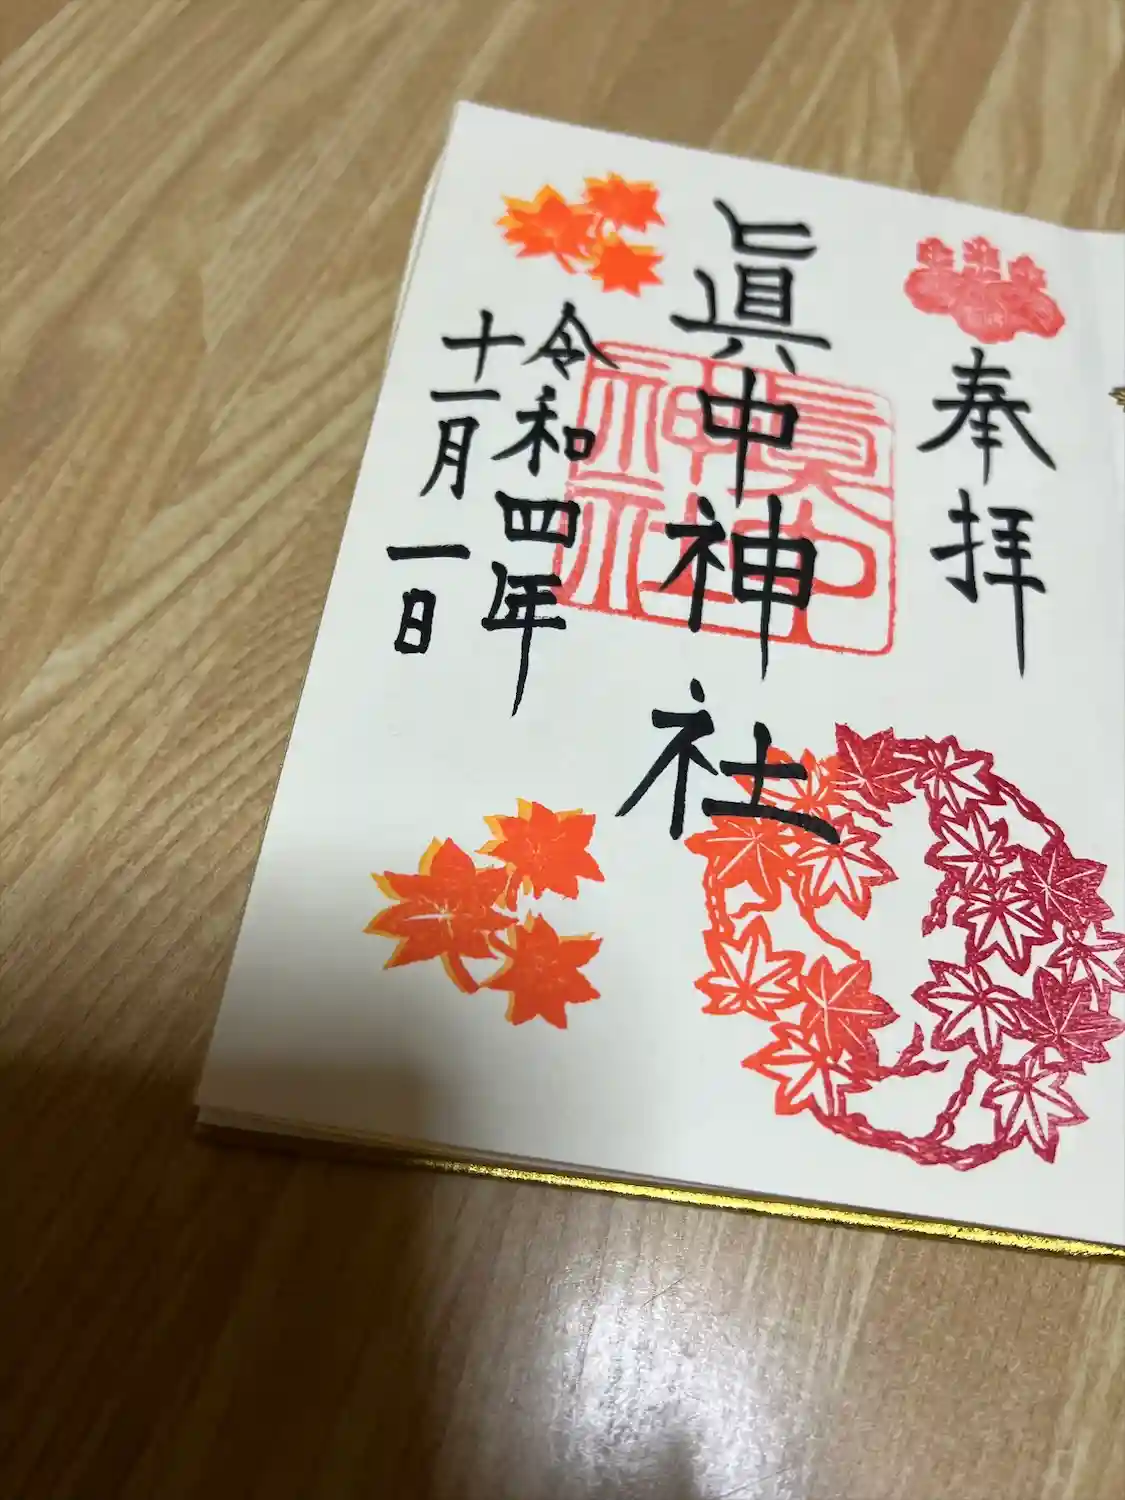 奉拝
眞中神社
眞中神社
令和四年
十一月一日